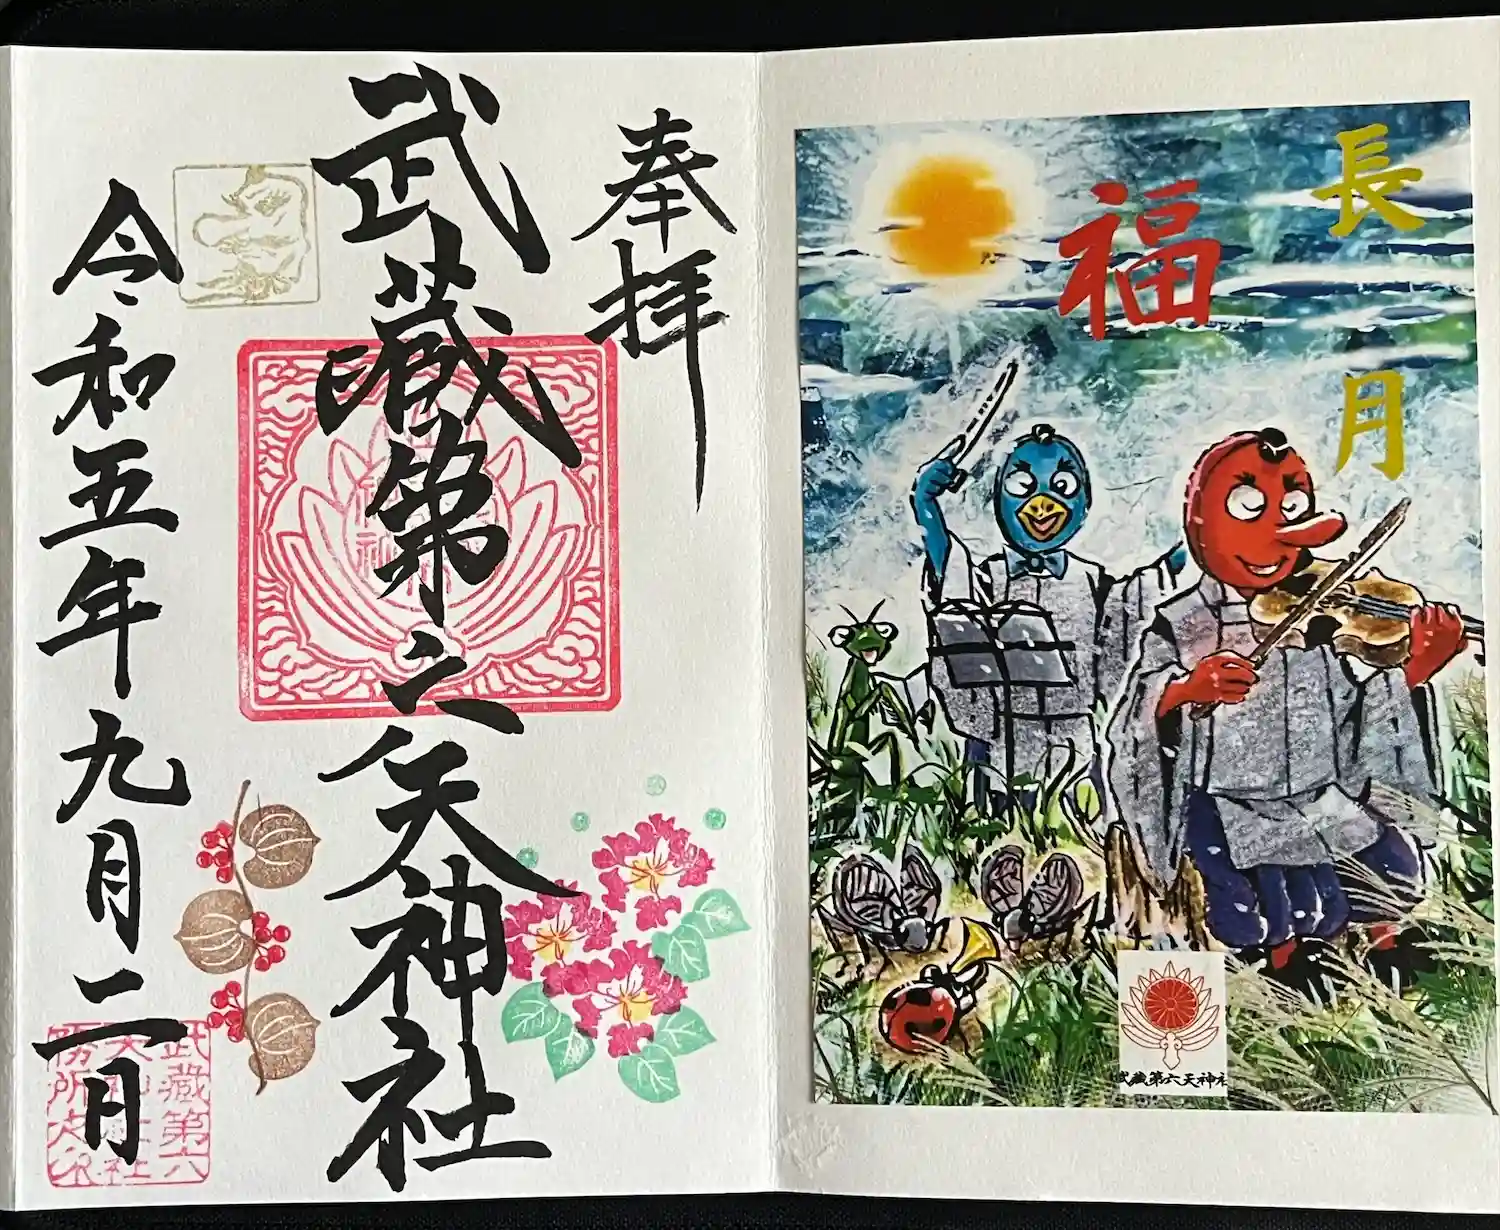 長月
福
武蔵第六天神社
奉拝
武蔵第六天神社
令和五年九月二日
武蔵第六